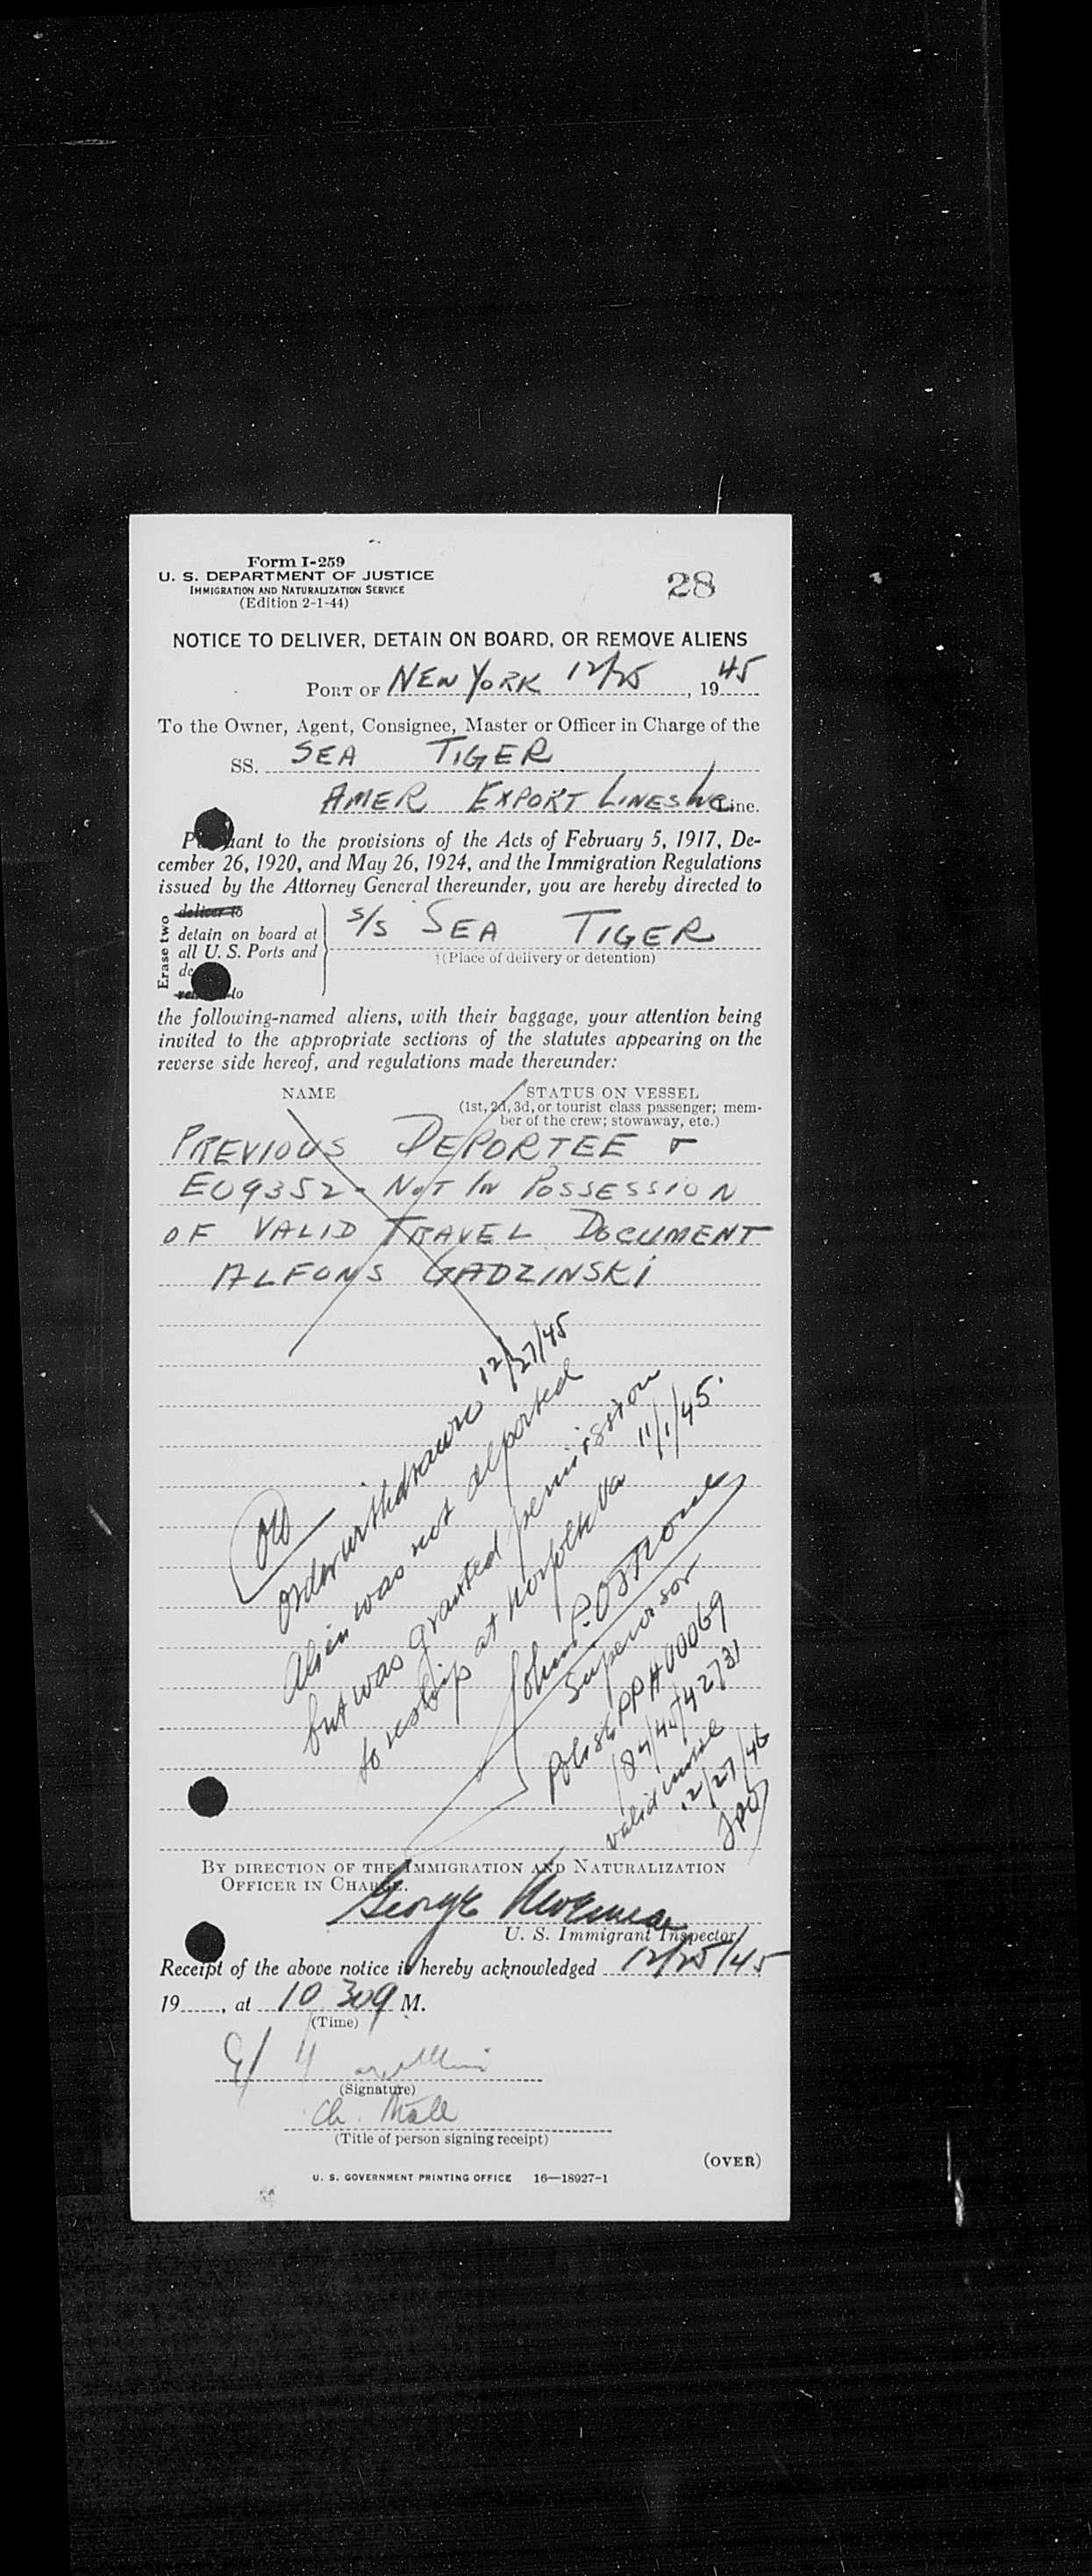 Form I-259
U. S. DEPARTMENT OF JUSTICE
IMMIGRATION AND NATURALIZATION SERVICE
(Edition 2-1-44)
28
NOTICE TO DELIVER, DETAIN ON BOARD, OR REMOVE ALIENS
PORT OF NEW YORK 12/25, 1945
To the Owner, Agent, Consignee, Master or Officer in Charge of the
SS. SEA TIGER
AMER EXPORT LINES Inc Line.
Pursuant to the provisions of the Acts of February 5, 1917, De-
cember 26, 1920, and May 26, 1924, and the Immigration Regulations
issued by the Attorney General thereunder, you are hereby directed to
Erase two
deliver to
detain on board at
all U. S. Ports and
to
S/S SEA TIGER
†(Place of delivery or detention)
the following-named aliens, with their baggage, your attention being
invited to the appropriate sections of the statutes appearing on the
reverse side hereof, and regulations made thereunder:
NAME
STATUS ON VESSEL
(1st, 2d, 3d, or tourist class passenger; mem-
ber of the crew; stowaway, etc.)
PREVIOUS DEPORTEE &
EO9352 - NOT IN POSSESSION
OF VALID TRAVEL DOCUMENT
ALFONS GADZINSKI
12/27/45
Order withdrawn
Alien was not deported
but was granted permission
to reship at Norfolk Va 11/1/45.
John P.
Supervisor
Polish PP # 00069
/84/45/42731
valid until
12/27/46
JPO
BY DIRECTION OF THE IMMIGRATION AND NATURALIZATION
OFFICER IN CHARGE.
George
U. S. Immigrant Inspector
Receipt of the above notice is hereby acknowledged 12/25/45
19, at 10 30 a M.
(Time)
(Signature)
Ch. Mate
(Title of person signing receipt)
(OVER)
U. S. GOVERNMENT PRINTING OFFICE 16—18927-1